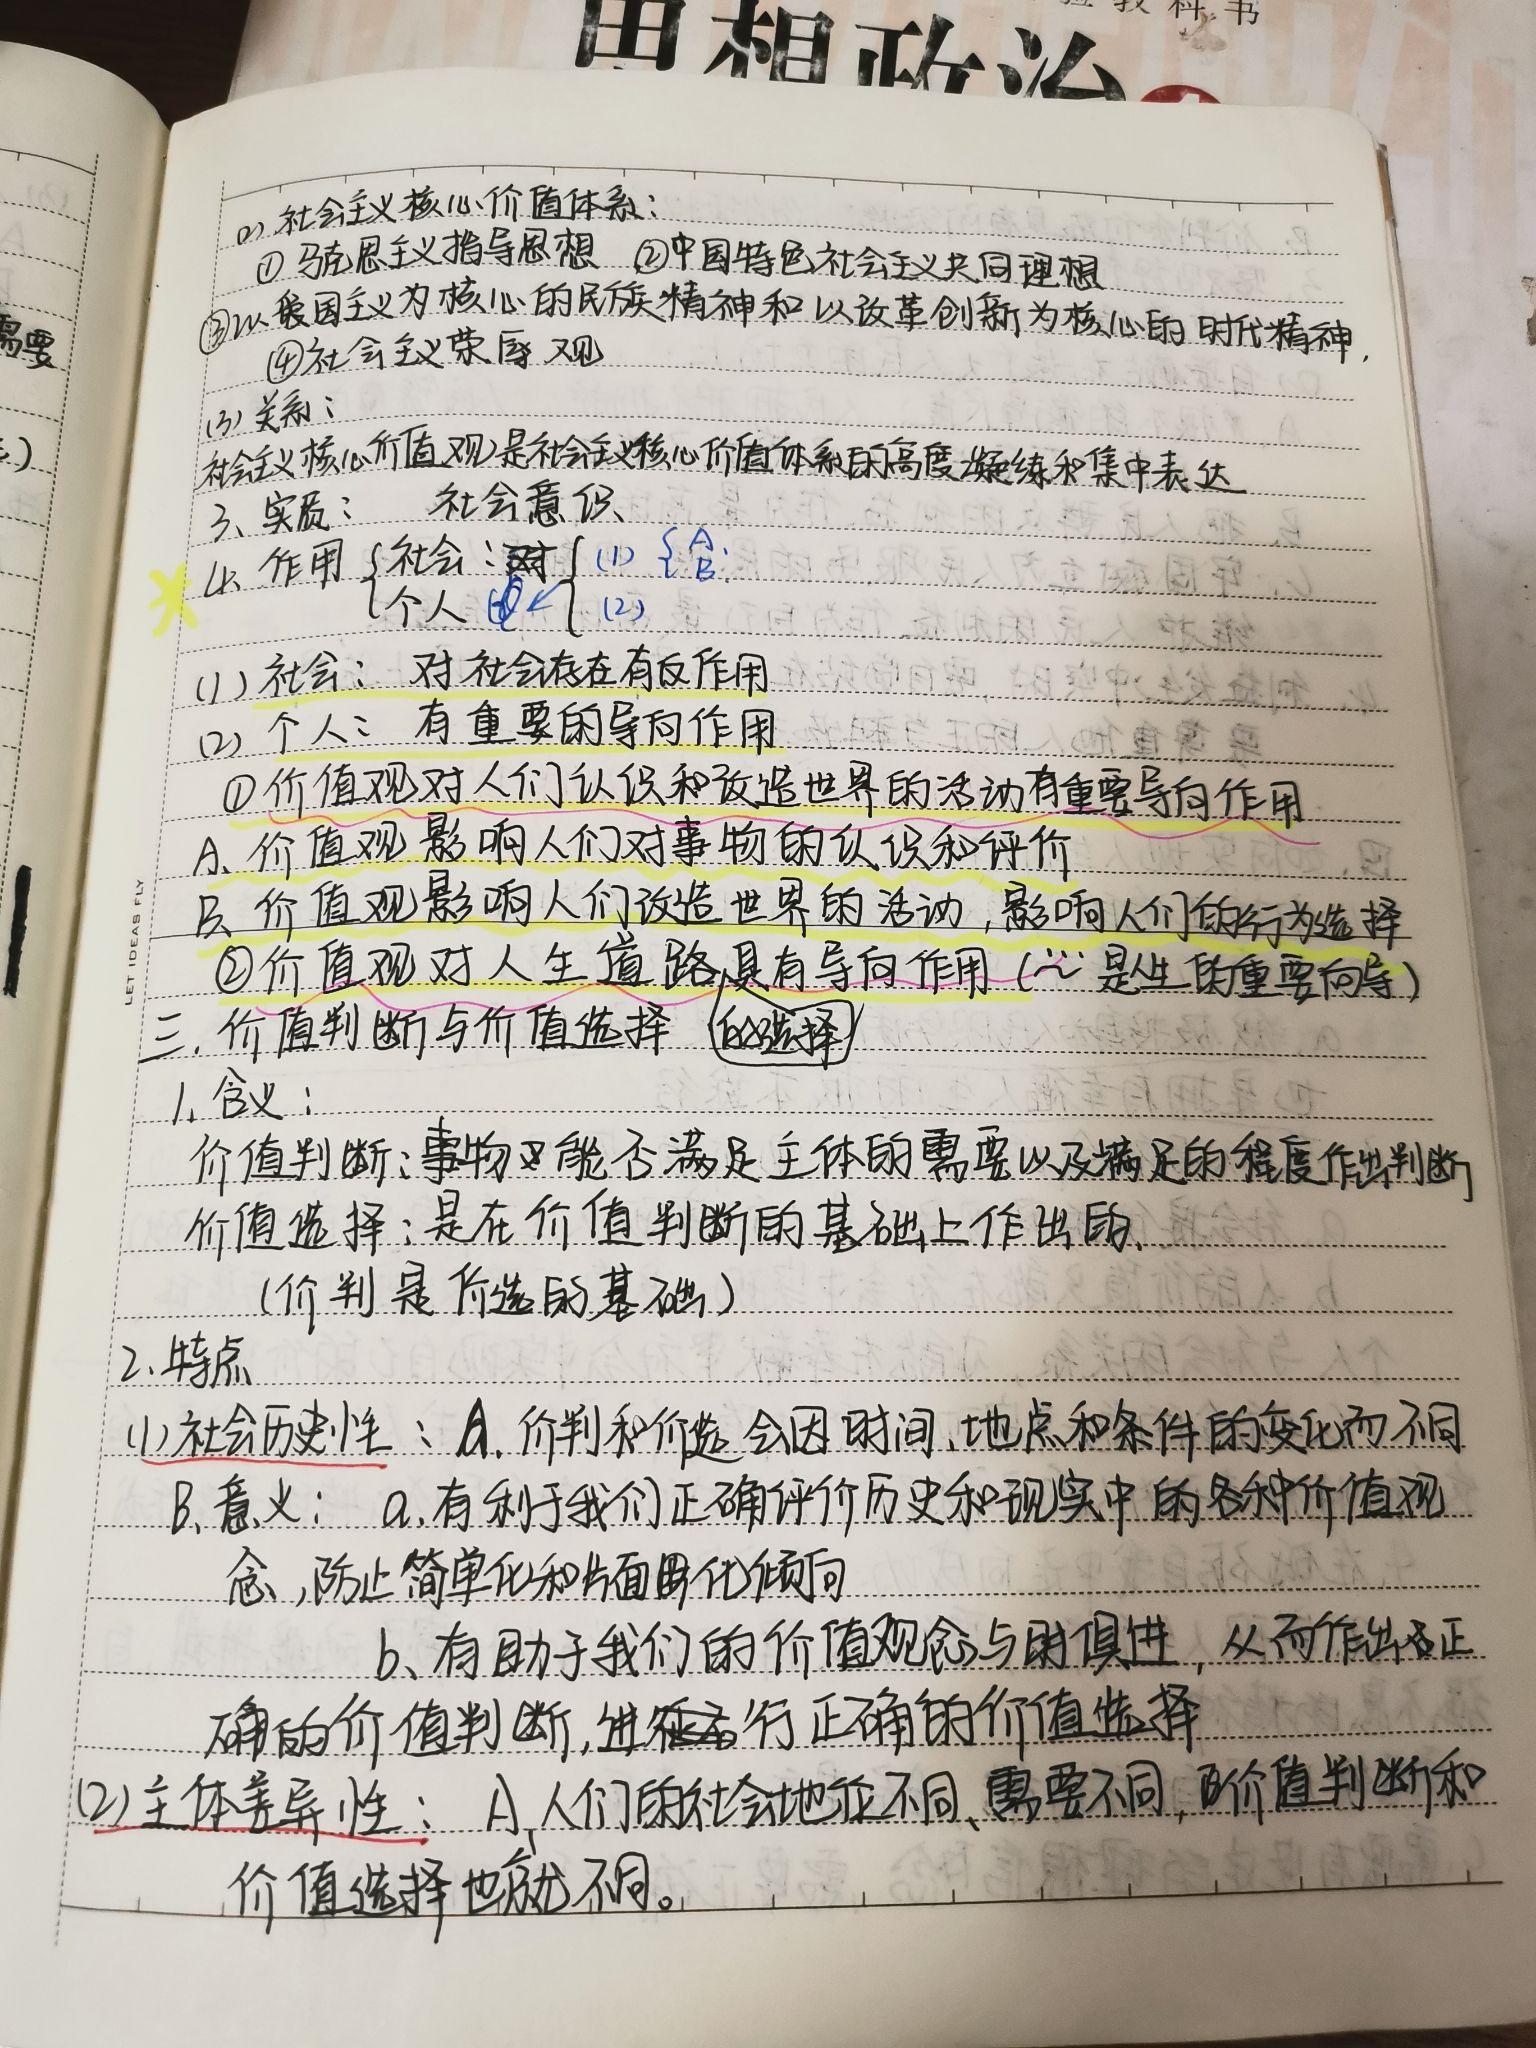 验教科书
思想政治
(2) 社会主义核心价值体系：
① 马克思主义指导思想 ②中国特色社会主义共同理想
③以爱国主义为核心的民族精神和以改革创新为核心的时代精神，
④社会主义荣辱观
(3) 关系：
社会主义核心价值观是社会主义核心价值体系的高度凝练和集中表达
3、实质： 社会意识、
4、作用 { 社会：对 { (1) { A.
B.
个人 (2)
(1) 社会： 对社会存在有反作用
(2) 个人： 有重要的导向作用
①价值观对人们认识和改造世界的活动有重要导向作用
A、价值观影响人们对事物的认识和评价
B、价值观影响人们改造世界的活动，影响人们的行为选择
②价值观对人生道路的选择具有导向作用（～是人生的重要向导）
三、价值判断与价值选择
1、含义：
价值判断：事物能否满足主体的需要以及满足的程度作出判断
价值选择：是在价值判断的基础上作出的、
（价判是价选的基础）
2、特点
(1)社会历史性：A. 价判和价选会因时间、地点和条件的变化而不同
B、意义： a. 有利于我们正确评价历史和现实中的各种价值观
念，防止简单化和片面化倾向
b、有助于我们的价值观念与时俱进，从而作出正
确的价值判断，进行正确的价值选择
(2)主体差异性： A、人们的社会地位不同、需要不同，价值判断和
价值选择也就不同。
LET IDEAS FLY
需要